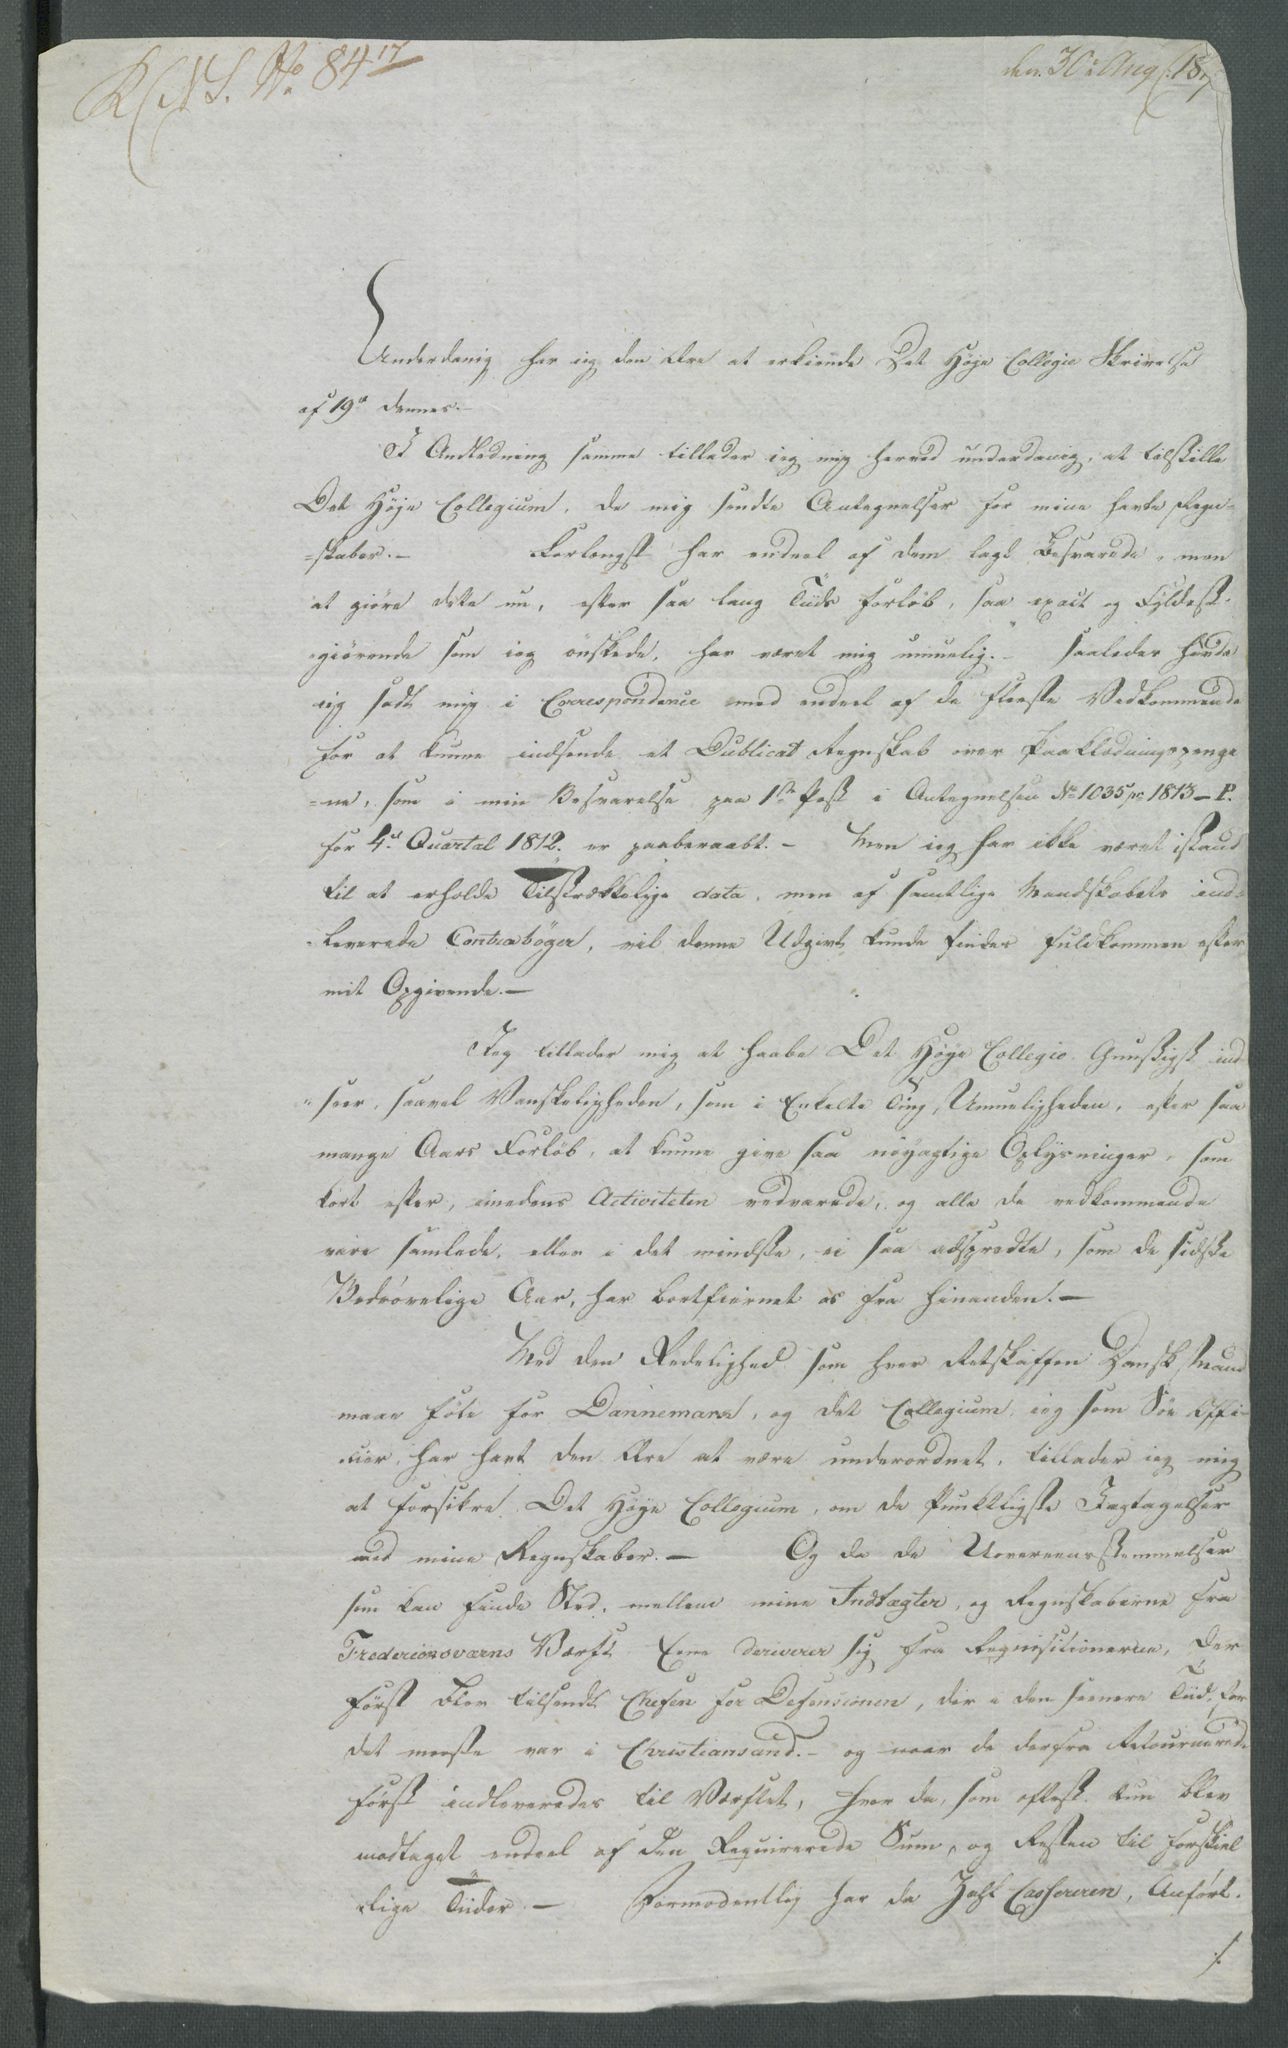 K N S. No 84 17
den 30te Aug 18
Underdanig har ieg den Ære at erkiende Det Høje Collegii Skrivelse
af 19de dennes.-
I Andledning samme tillader ieg mig herved underdanig, at tilstille
Det Høje Collegium, de mig sendte Antegnelser for mine havte Regn-
=skaber.- Forlængst har endeel af dem lagt Besvarede, men
at giøre dette nu, efter saa lang Tiids Forløb, saa exact og Fyldest-
giørende som ieg ønskede, har været mig umuelig.- Saaledes havde
ieg sadt mig i Correspondence med endeel af de fleeste Vedkommende
for at kunne indsende et Dublicat Regnskab over Paaklædningspenge
=ne, som i min Besvarelse paa 1ste Post i Antegnelsen No 1035 pro 1813 - P.
for 4de Quartal 1812. er paaberaabt.- Men ieg har ikke været istand
til at erholde Tilstrækkelige data, men af samtlige Mandskabets ind=
=leverede Contrabøger, vil denne Udgivt kunde findes fuldkommen efter
mit Opgivende.-
Jeg tillader mig at haabe Det Høye Collegie Gunstigst ind
=seer, saavel Vanskeligheden, som i Enkelte Ting, Umueligheden, efter saa
mange Aars Forløb, at kunne give saa nøyagtige Oplysninger, som
kort efter, imedens Activiteten vedvarede, og alle de vedkommende
vare samlede, eller i det mindste, ei saa adspredte, som de sidste
Bedrøvelige Aar, har bortfiernet os fra hinanden.-
Med den Redelighed som hver Retskaffen Dansk Mand
maae føle for Dannemark, og det Collegium, ieg som Søe Offi-
cier, har havt den Ære at være underordnet, tillader ieg mig
at forsikre Det Høye Collegium, om de Punktligste Iagtagelser
ved mine Regnskaber.- Og da de Uovereensstemmelser
som kan finde Sted, mellem mine Indtægter, og Regnskaberne fra
Fredericksværns Værft Ene deriverer sig fra Reqvisitionerne, der
først blev tilsendt Chefen for Defensionen, der i den seenere Tiid, for
det meeste var i Christiansand.- og naar de derfra Retournerede
først indleveredes til Værftet, hvor da, som oftest kun blev
modtaget endeel af den Requirerede Sum, og Resten til forskiel
lige Tiider.- Formodentlig har da Zahl Cassereren, Anført.
./.